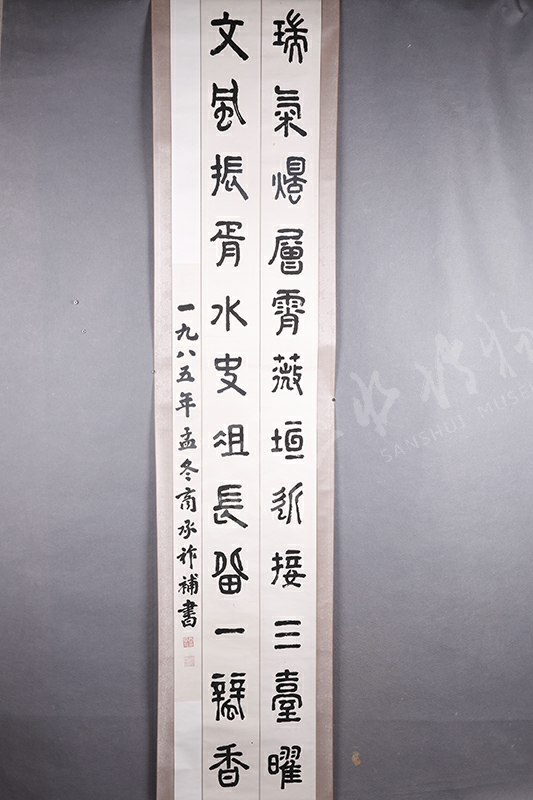 瑞氣層霄薇垣近接三臺曜
文風振胥水俎長留一瓣香
一九八五年孟冬商承祚補書
SANSHUI MUSE